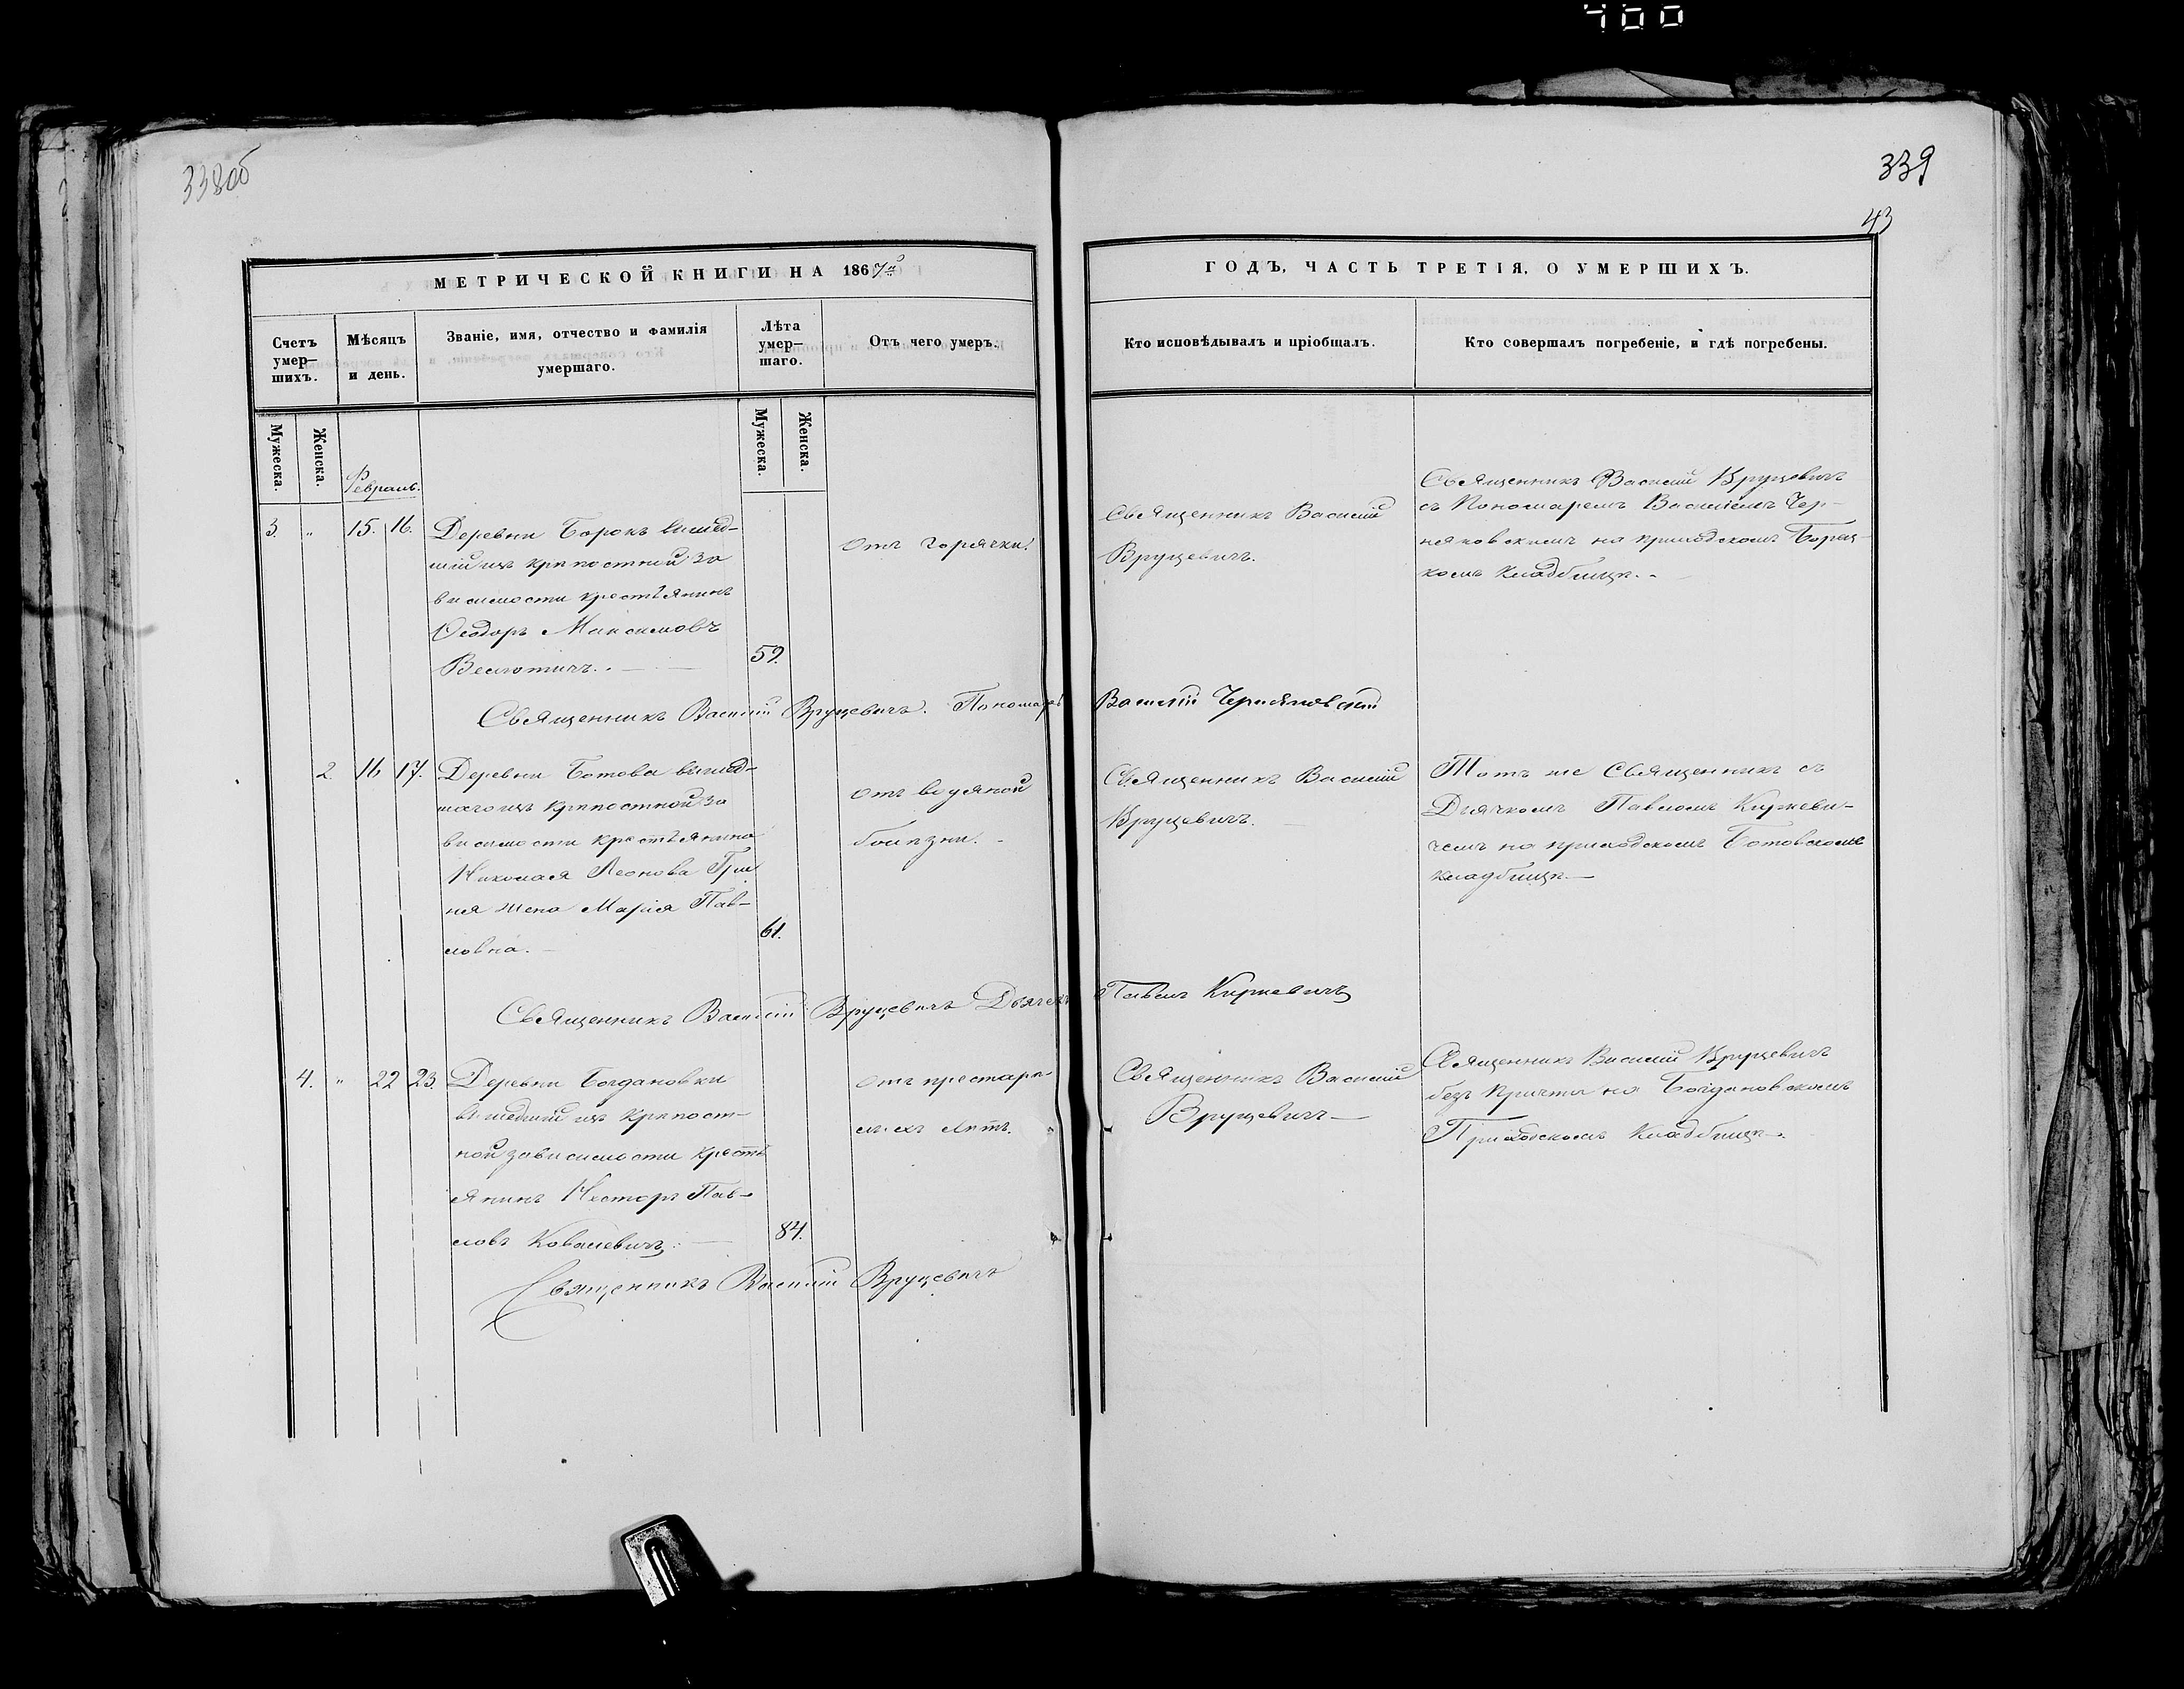 400
338об
339
43
МЕТРИЧЕСКОЙ КНИГИ НА 1867й
ГОДЪ, ЧАСТЬ ТРЕТІЯ, О УМЕРШИХЪ.
Счетъ умер–шихъ.
Мѣсяцъ и день.
Званіе, имя, отчество и фамилія умершаго.
Лѣта умер–шаго.
Отъ чего умеръ.
Кто исповѣдывалъ и пріобщалъ.
Кто совершалъ погребеніе, и гдѣ погребены.
Мужеска.
Женска.
Мужеска.
Женска.
Февраль.
3. " 15. 16.
Деревни Борокъ вишед–
шій изъ крѣпостной за
висимости крестьянинъ
Ѳеодоръ Максимовъ
59.
Отъ горячки.
Священникъ Василій
Вруцевичъ.
Священникъ Василій Вруцевичъ
съ Пономаремъ Василіемъ Чер–
няковскимъ на приходскомъ Борец–
комъ кладбищѣ.
Священникъ Василій Вруцевичъ. Пономарь Василій Черняковскій
2. 16 17.
Деревни Ботова вишед–
шаго изъ крѣпостной за
висимости крестьянина
Николая Леонова Гри
ня жена Марія Пав–
ловна.
61.
Отъ водяной
болѣзни.
Священникъ Василій
Вруцевичъ.
Тотъ же Священникъ съ
Дьячкомъ Павломъ Киркеви–
чемъ на приходскомъ Ботовскомъ
кладбищѣ
Священникъ Василій Вруцевичъ Дьячекъ Павелъ Киркевичъ
4. " 22 23.
Деревни Богдановки
вишедшій изъ крѣпост–
ной зависимости кресть
янинъ Несторъ Пав–
ловъ Ковалевичъ.
84.
Отъ престарѣ–
лыхъ лѣтъ.
Священникъ Василій
Вруцевичъ
Священникъ Василій Вруцевичъ
безъ Причта на Богдановскомъ
Приходскомъ Кладбищѣ.
Священникъ Василій Вруцевичъ